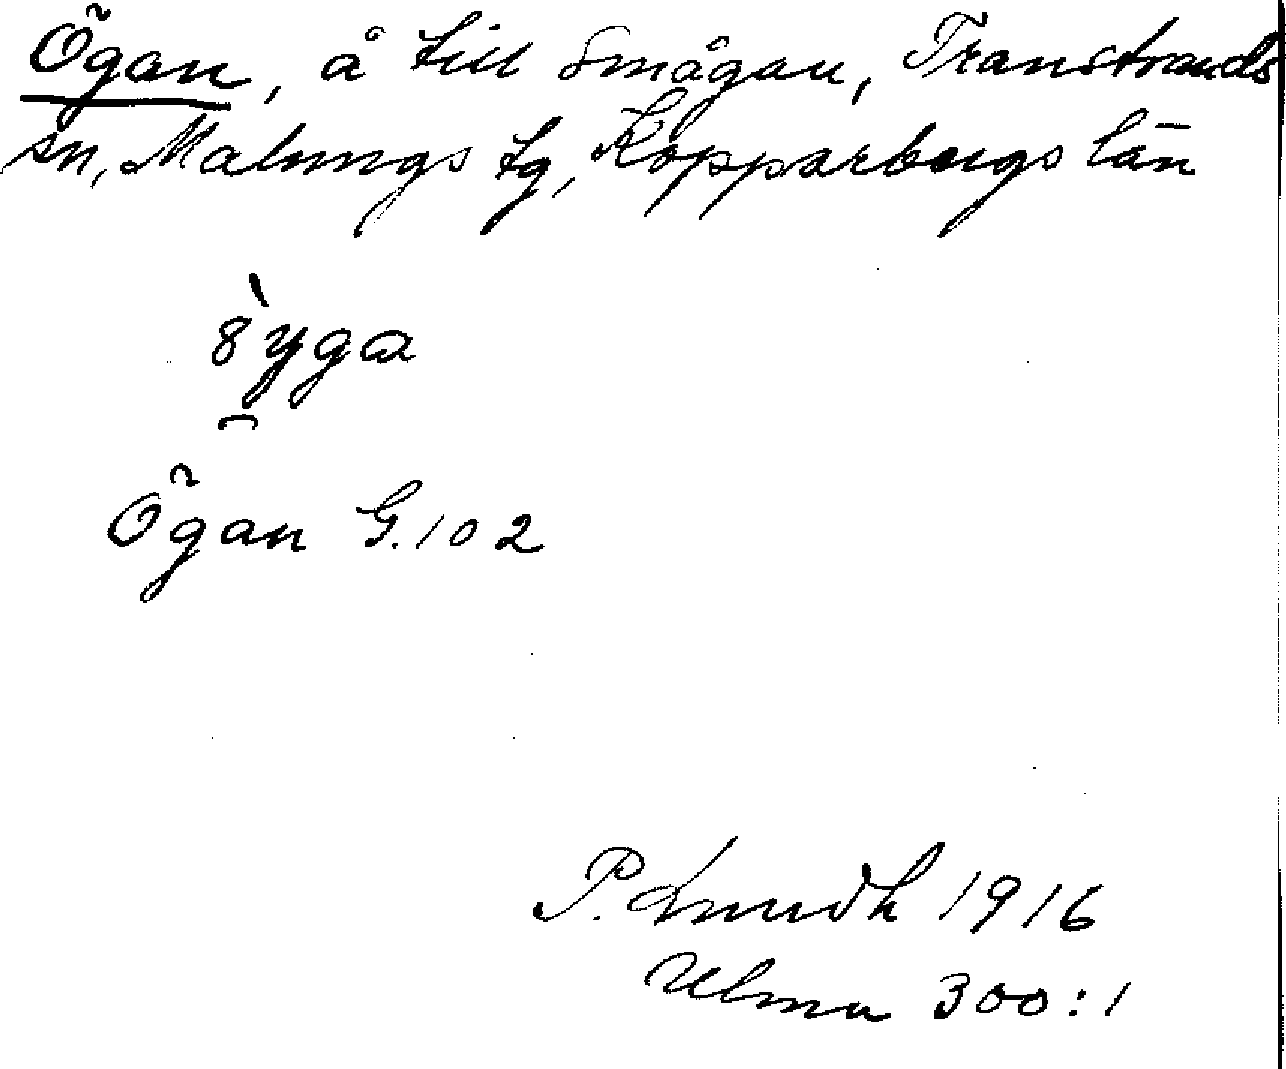 Ögan, å till Smågan, Transtrands
sn, Malungs tg, Kopparbergs län
Ögan G.102
P. Lindh 1916
Ulma 300:1